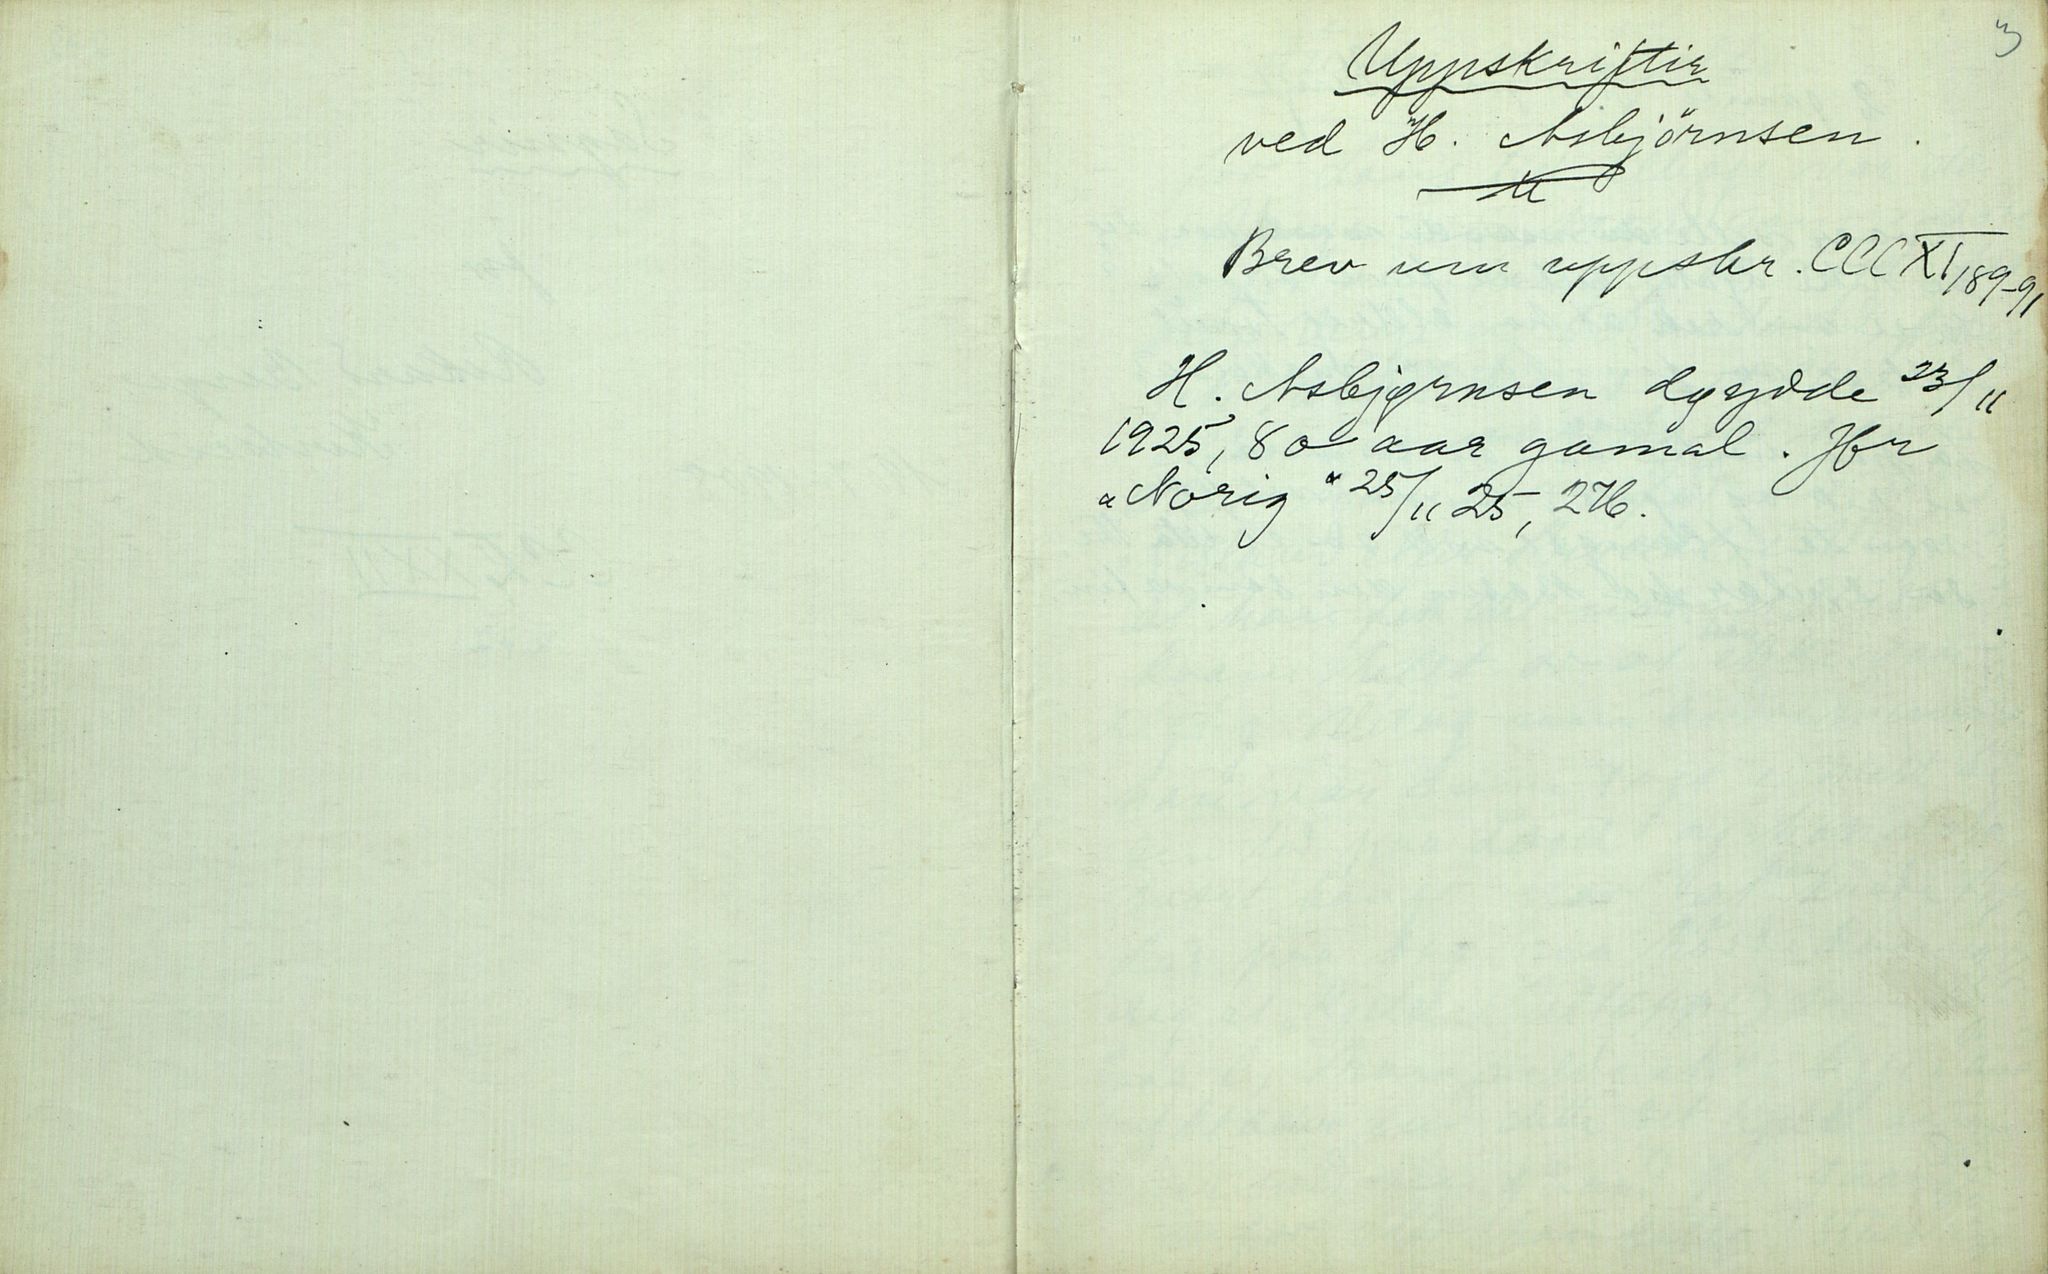 3
Uppskriftir
ved H. Asbjörnsen.
Brev um uppskr. CCCXI, 189-91
H. Asbjørnsen døydde 23/11
1925, 80 aar gamal. Jfr
"Norig" 25/11 25, 276.